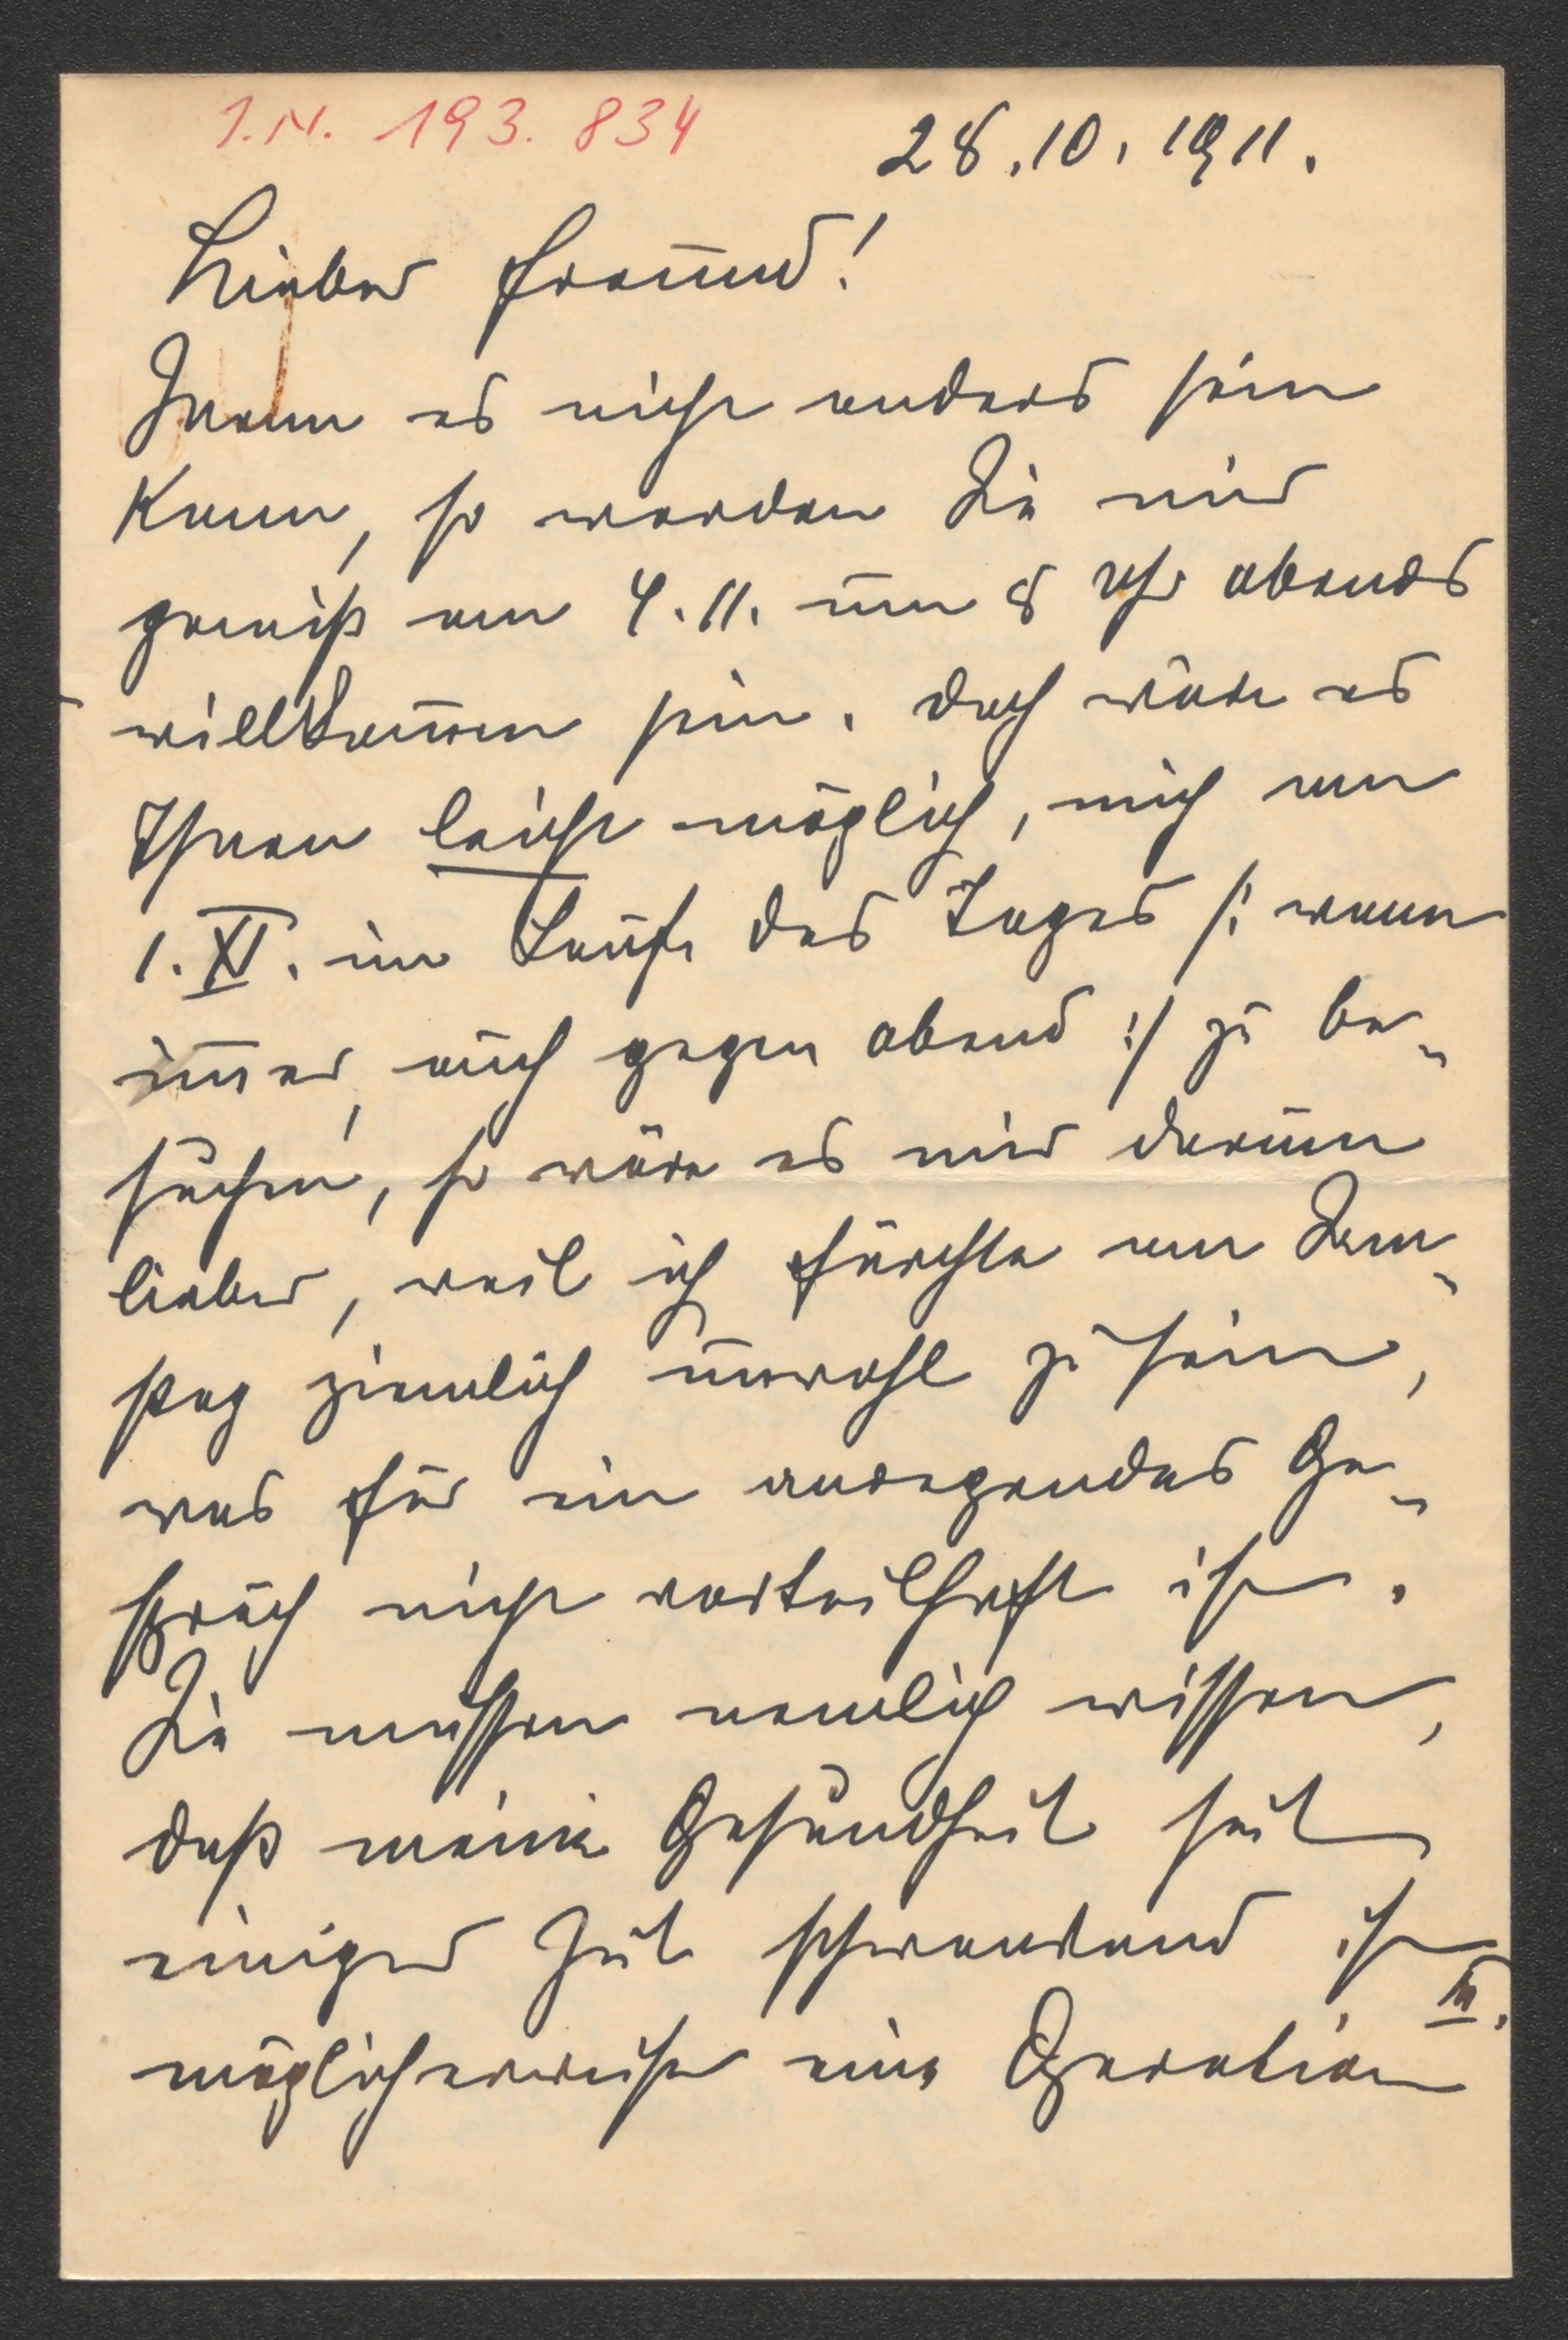 I.N. 193.834
28.10.1911.
Lieber Freund!
Wenn es nicht anders sein
kann, so werden Sie mir
gewiß am 4.11. um 8 Uhr abends
willkommen sein. Doch wäre es
Ihnen leicht möglich, mich am
1. XI. im Laufe des Tages /: wann
immer, auch gegen abend :/ zu be-
suchen, so wäre es mir darum
lieber, weil ich fürchte am Sam-
stag ziemlich unwohl zu sein,
was für ein anregendes Ge-
spräch nicht vorteilhaft ist.
Sie müssen nemlich wissen,
daß meine Gesundheit seit
einiger Zeit schwankend ist
möglicherweise eine Operation